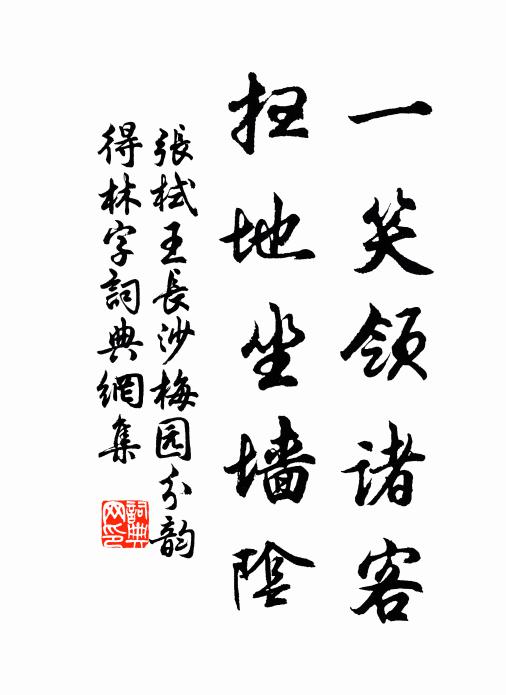 一笑领诸客
扫地坐墙阴
張栻王長沙梅园分韵
得林字詞典網集
詞典
网印